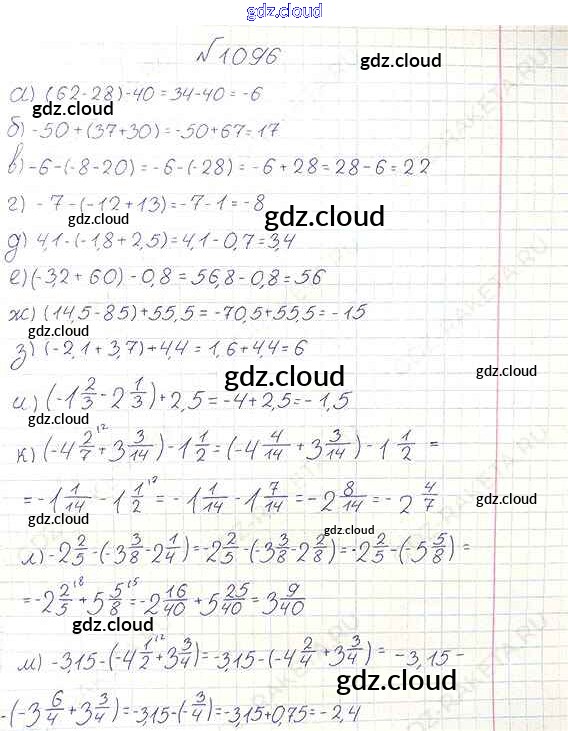 gdz.cloud
№1096
а) (62-28)-40=34-40=-6
gdz.cloud
gdz.cloud
б) -50+(37+30)=-50+67=17
в) -6-(-8-20)=-6-(-28)=-6+28=28-6=22
г) -7-(-12+13)=-7-1=-8
gdz.cloud
gdz.cloud
д) 4,1-(-1,8+2,5)=4,1-0,7=3,4
е) (-3,2+60)-0,8=56,8-0,8=56
ж) (14,5-85)+55,5=-70,5+55,5=-15
gdz.cloud
gdz.cloud
з) (-2,1+3,7)+4,4=1,6+4,4=6
gdz.cloud
и) (-1 2/3-2 1/3)+2,5=-4+2,5=-1,5
к) (-4 2/7+3 3/14)-1 1/2=(-4 4/14+3 3/14)-1 1/2=
=-1 1/14-1 1/2=-1 1/14-1 7/14=-2 8/14=-2 4/7
gdz.cloud
л) -2 2/5-(-3 3/8-2 1/4)=-2 2/5-(-3 3/8-2 2/8)=-2 2/5-(-5 5/8)=
=-2 2/5+5 5/8=-2 16/40+5 25/40=3 9/40
gdz.cloud
gdz.cloud
м) -3,15-(-4 1/2+3 3/4)=-3,15-(-4 2/4+3 3/4)=-3,15-
gdz.cloud
-(-3 6/4+3 3/4)=-3,15-(-3/4)=-3,15+0,75=-2,4
gdz.cloud
GDZ-RAKETA.RU